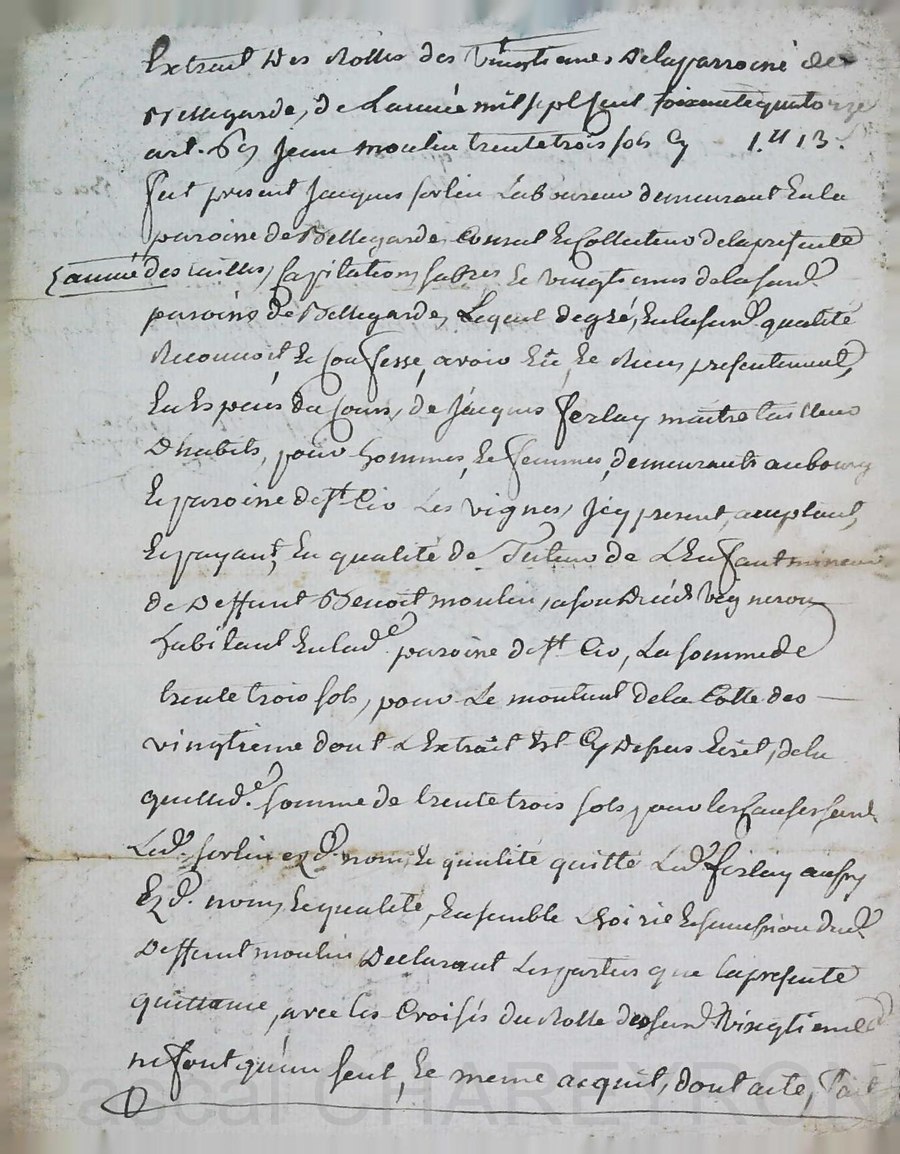 Extrait Des Rolles des vingtiemes Delaparroine de
Bellegarde, de Lannée mil sept Cent soixantequatorze
art. 69 Jean moulin trente trois sols Cy 1.tt 13.s
fut present Jacques ferlin Laboureur demeurant Enla
paroine de Bellegarde, Consul Ec Collecteur delapresente
année des tailles, Capitation, Ec vingtiemes delasusd.e
paroine de Bellegarde, Lequel degré, Enlasusd.e qualité
Reconnoit, Ec Confesse, avoir Eté, Ec Receu presentement,
En Especes du Cours, de Jacques ferlay maitre tailleur
Dhabits, pour hommes, Ec femmes, demeurants aubourg
Ec paroine de st Cir Les vignes, Jcy present, acceptant,
Ec payant, En qualité de Tuteur de L'Enfant mineur
de Deffunt Benoit moulin, asondeced vigneron
habitant Enlad.e paroine de st Cir, La somme de
trente trois sols, pour Le montant dela Cotte des
vingtieme dont L'Extrait Est Cy Depus Ecrit, dela
quelled.e somme de trente trois sols pour les Causes susd.
Led.t ferlin ezd. nom, Ec qualité quitte Led.t ferlay aussy
Ezd. nom, Ec qualité, Ensemble Lhoirie Ec succession dud.t
Deffunt moulin Declarant Les parties que lapresente
quittance, avec les Croisés du Rolle des susd. vingtiemes
ne font qu'un seul, Ec meme acquit, dont acte, fait
Pascal CHAREYRON